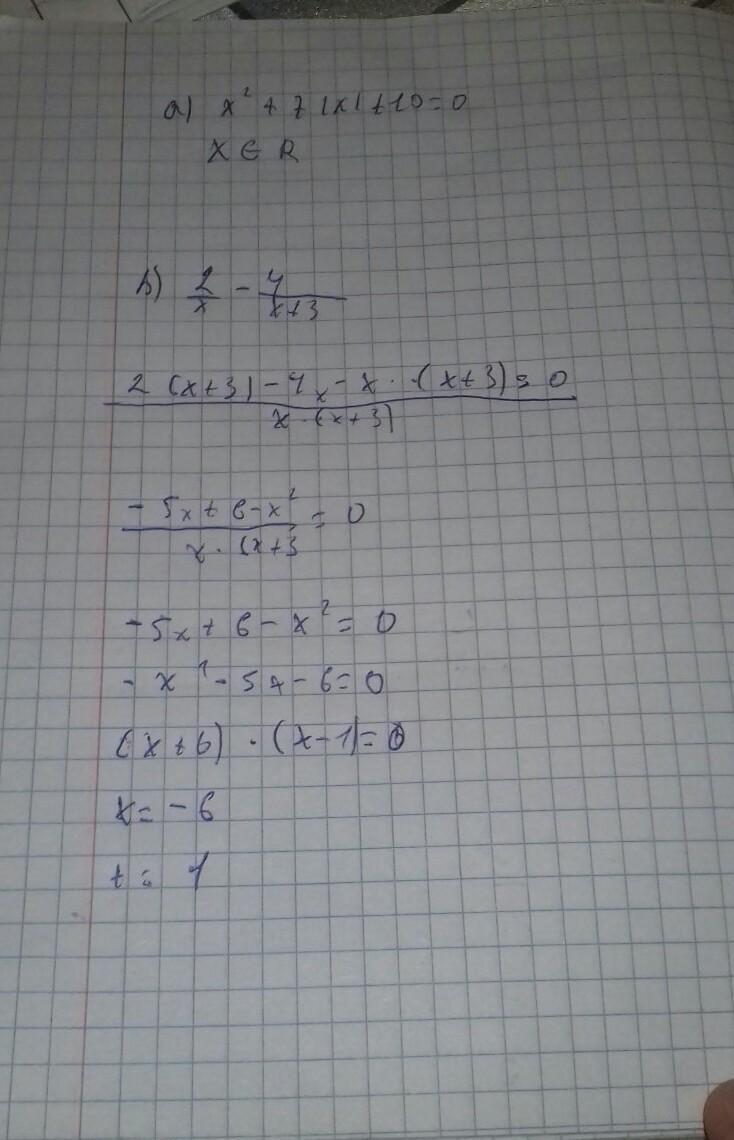 a) x² + 7|x| + 10 = 0
x ∈ R
b) 2/x - 4/(x+3)
(2 (x+3) - 4x - x · (x+3))/(x · (x+3)) = 0
(- 5x + 6 - x²)/(x · (x+3) = 0
- 5x + 6 - x² = 0
- x² - 5x - 6 = 0
(x + 6) · (x - 1) = 0
x = - 6
t = 1